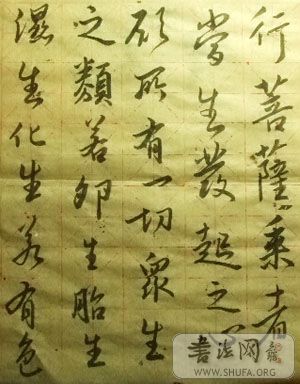 行菩薩乘者
當生發起之
願所有一切眾生
之類若卵生胎生
濕生化生若有色
書法网
WWW.SHUFA.ORG